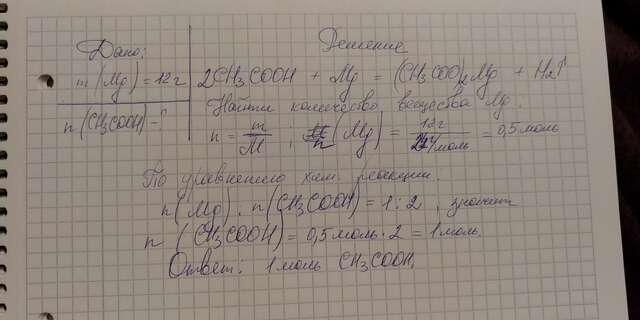 Дано:
m(Mg)=12г
n(CH3COOH)-?
Решение
2CH3COOH + Mg = (CH3COO)2Mg + H2↑
Найти количество вещества Mg:
n = m/M ; n(Mg) = 12г/24г/моль = 0,5 моль
По уравнению хим. реакции:
n(Mg) : n(CH3COOH) = 1:2, значит
n (CH3COOH) = 0,5 моль · 2 = 1 моль.
Ответ: 1 моль CH3COOH.